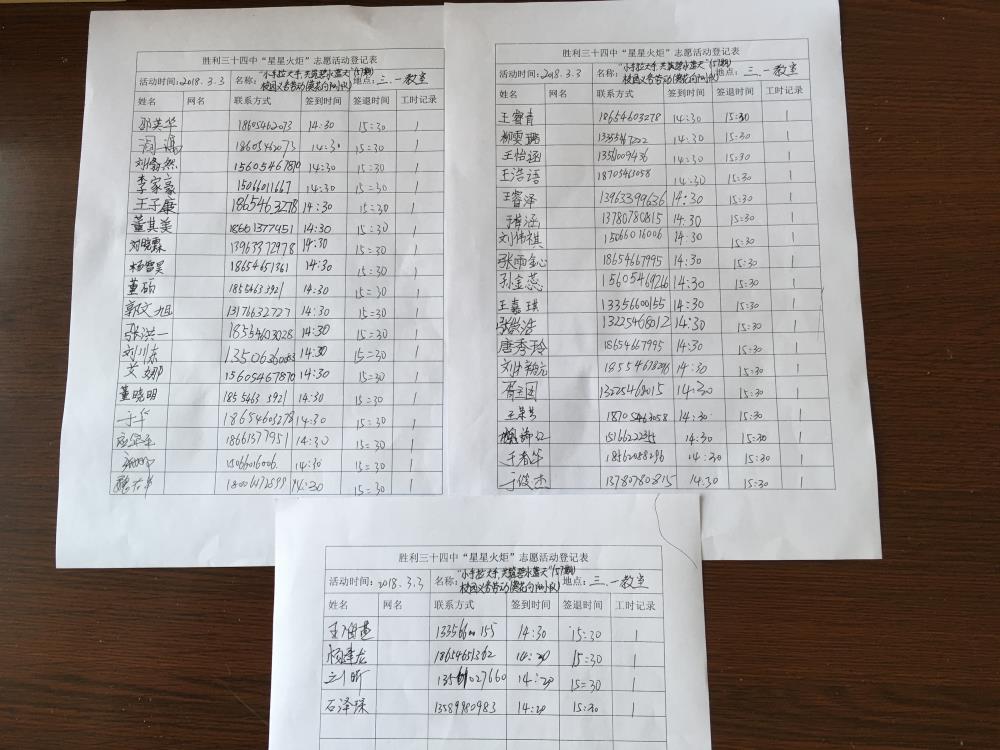 胜利三十四中“星星火炬”志愿活动登记表
活动时间:2018.3.3 名称:“小手拉大手,共筑碧水蓝天”(57期) 校园义务劳动 地点:三.一教室
姓名 网名 联系方式 签到时间 签退时间 工时记录
郭英华 18605462073 14:30 15:30 1
18605462073 14:30 15:30 1
刘翕然 15605467870 14:30 15:30 1
李家豪 15066011667 14:30 15:30 1
王子康 14:30 15:30 1
董其美 18661377451 14:30 15:30 1
刘晓霖 13963372978 14:30 15:30 1
杨智昊 18654651361 14:30 15:30 1
董硕 18554633921 14:30 15:30 1
郭文旭 13176632727 14:30 15:30 1
张洪一 18554603028 14:30 15:30 1
刘川东 14:30 15:30 1
艾娜 15605467870 14:30 15:30 1
董晓明 18554633921 14:30 15:30 1
于华 18654603278 14:30 15:30 1
18661377951 14:30 15:30 1
15066016006 14:30 15:30 1
18006472599 14:30 15:30 1
胜利三十四中“星星火炬”志愿活动登记表
活动时间:2018.3.3 名称:“小手拉大手,共筑碧水蓝天”(57期) 校园义务劳动 地点:三.一教室
姓名 网名 联系方式 签到时间 签退时间 工时记录
王睿青 18654603278 14:30 15:30 1
柳雯璐 14:30 15:30 1
王怡涵 13561009436 14:30 15:30 1
王浩语 18705463058 14:30 15:30 1
王睿泽 13963399636 14:30 15:30 1
于睿涵 13780780815 14:30 15:30 1
刘伟祺 15066016006 14:30 15:30 1
张雨金心 18654667995 14:30 15:30 1
孙金蕊 15605469266 14:30 15:30 1
王嘉琪 13356600155 14:30 15:30 1
13225468012 14:30 15:30 1
唐秀玲 18654667995 14:30 15:30 1
14:30 15:30 1
13225468015 14:30 15:30 1
18705463058 14:30 15:30 1
14:30 15:30 1
王春华 18562058296 14:30 15:30 1
于俊杰 13780780815 14:30 15:30 1
胜利三十四中“星星火炬”志愿活动登记表
活动时间:2018.3.3 名称:“小手拉大手,共筑碧水蓝天”(57期) 校园义务劳动 地点:三.一教室
姓名 网名 联系方式 签到时间 签退时间 工时记录
14:30 15:30 1
杨建龙 18654651362 14:30 15:30 1
刘昕 13561027660 14:20 15:30 1
石泽琛 13589980983 14:20 15:30 1